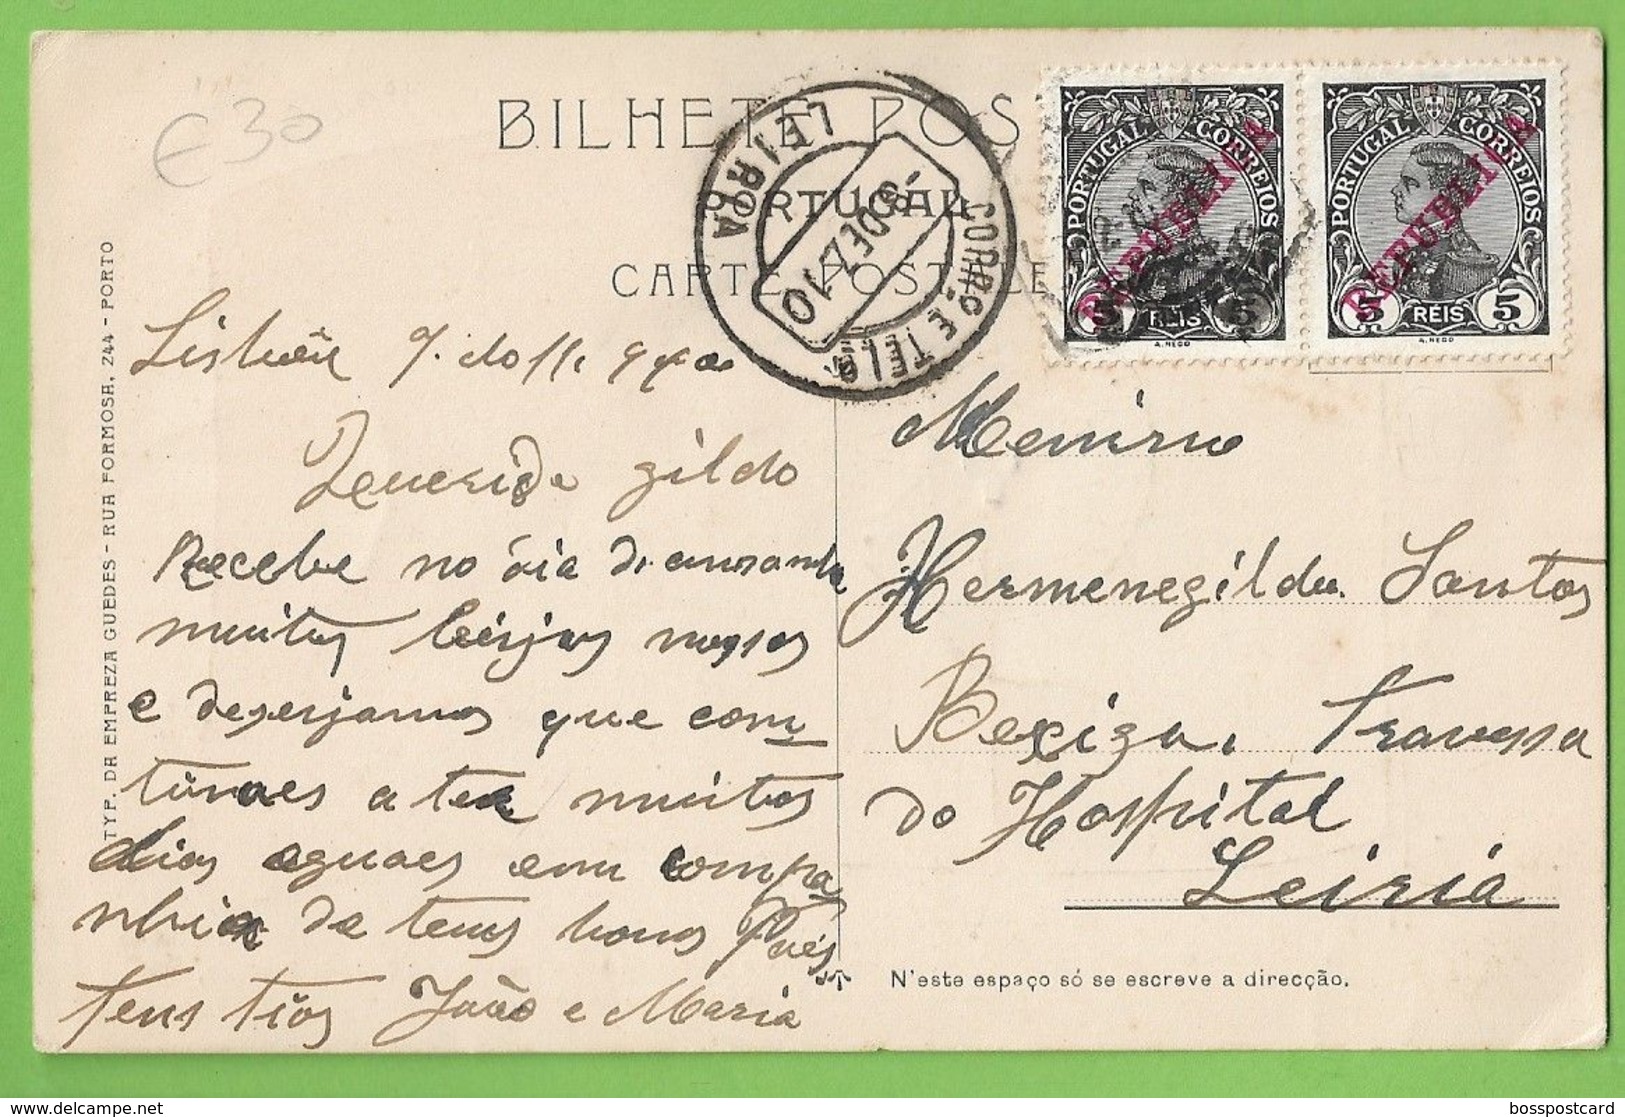 €30
BILHETE POS
PORTUGAL
CARTE POSTALE
LEIRIA
8 DEZ 10
CORRO. E TELO.
PORTUGAL CORREIOS
REPUBLICA
5 REIS 5
A. NEGO
PORTUGAL CORREIOS
REPUBLICA
5 REIS 5
A. NEGO
TYP. DA EMPREZA GUEDES - RUA FORMOSA, 244 - PORTO
Lisboa 7 do
Querido Gildo
Recebe no dia
muitos beijos nossos
e desejamos que con
tinues a ter muitos
dias eguaes em compa
nhia de teus bons Paes
teus tios João e Maria
Menino
Hermenegildo Santos
Bexiga. Travessa
do Hospital
Leiria
N'este espaço só se escreve a direcção.
bosspostcard